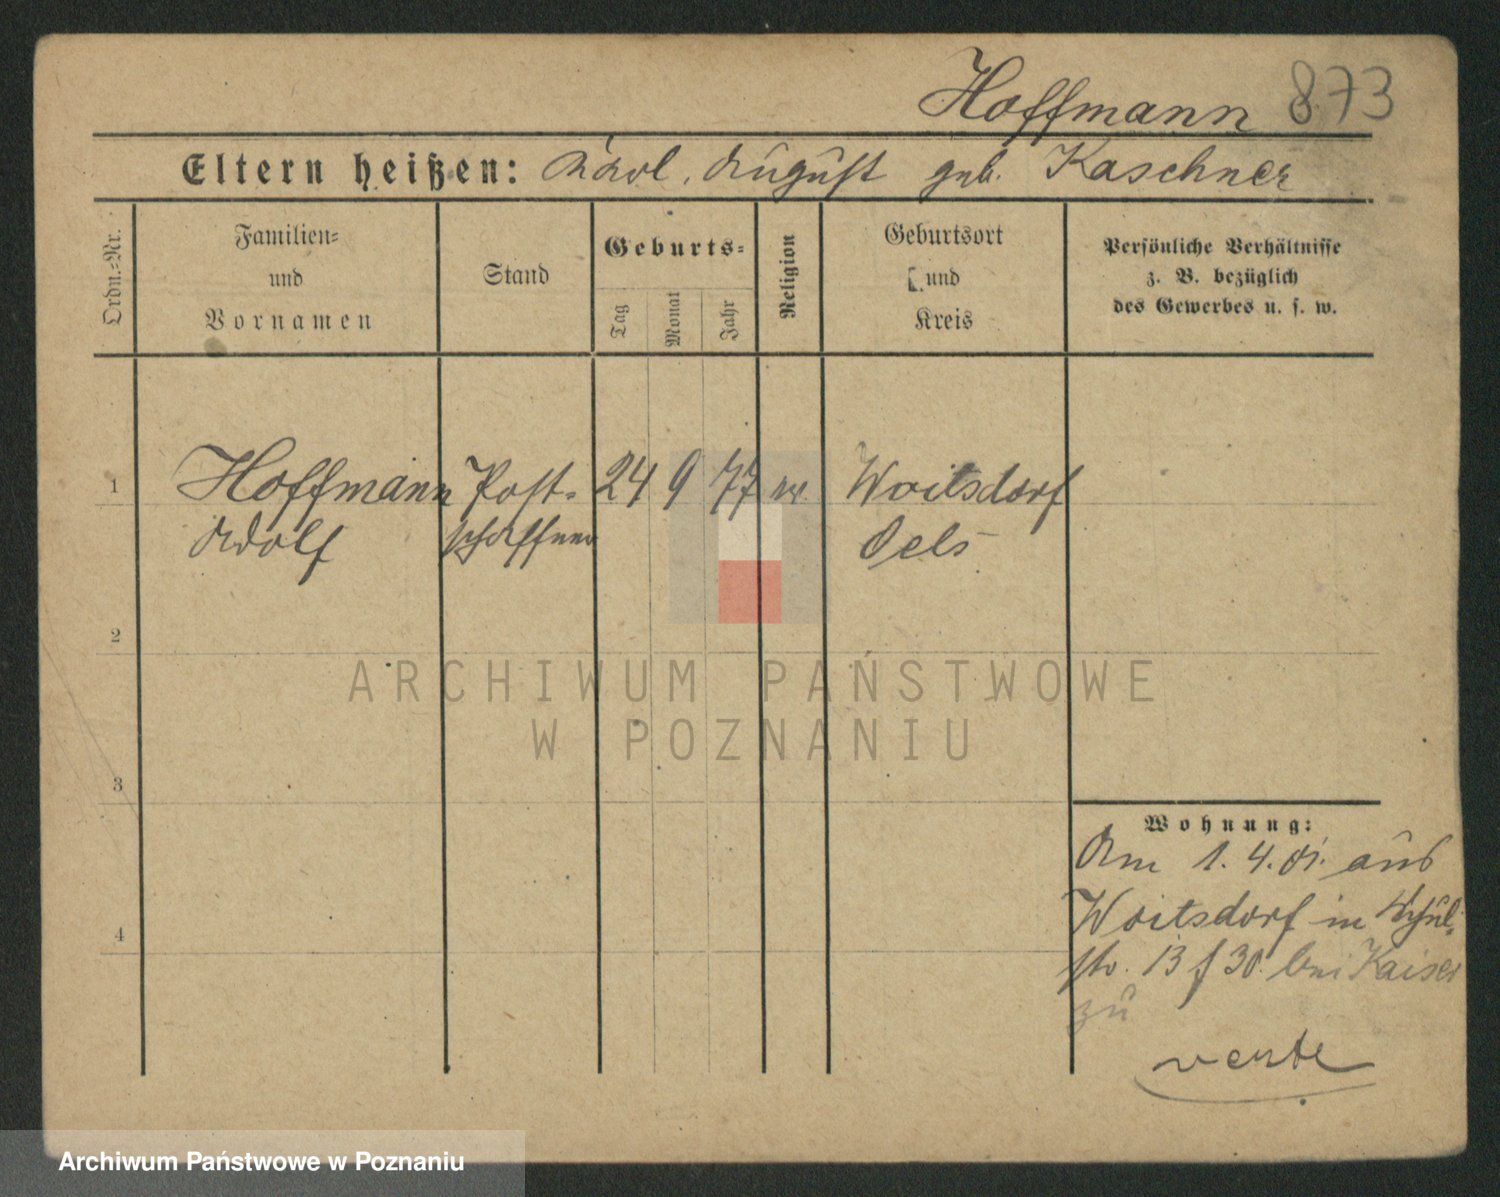 Hoffmann 873
Eltern heißen: Karl, August geb. Kaschner
Ordn.-Nr.
Familien-
und
Vornamen
Stand
Geburts-
Tag
Monat
Jahr
Religion
Geburtsort
und
Kreis
Persönliche Verhältnisse
z. B. bezüglich
des Gewerbes u. s. w.
1 Hoffmann Post- 24 9 77 ev Woitsdorf
Adolf schaffner Oels
2
3
4
Wohnung:
Am 1. 4. 01. aus
Woitsdorf in Schul-
str. 13 f 30. bei Kaiser
zu
verte
ARCHIWUM PAŃSTWOWE
W POZNANIU
Archiwum Państwowe w Poznaniu